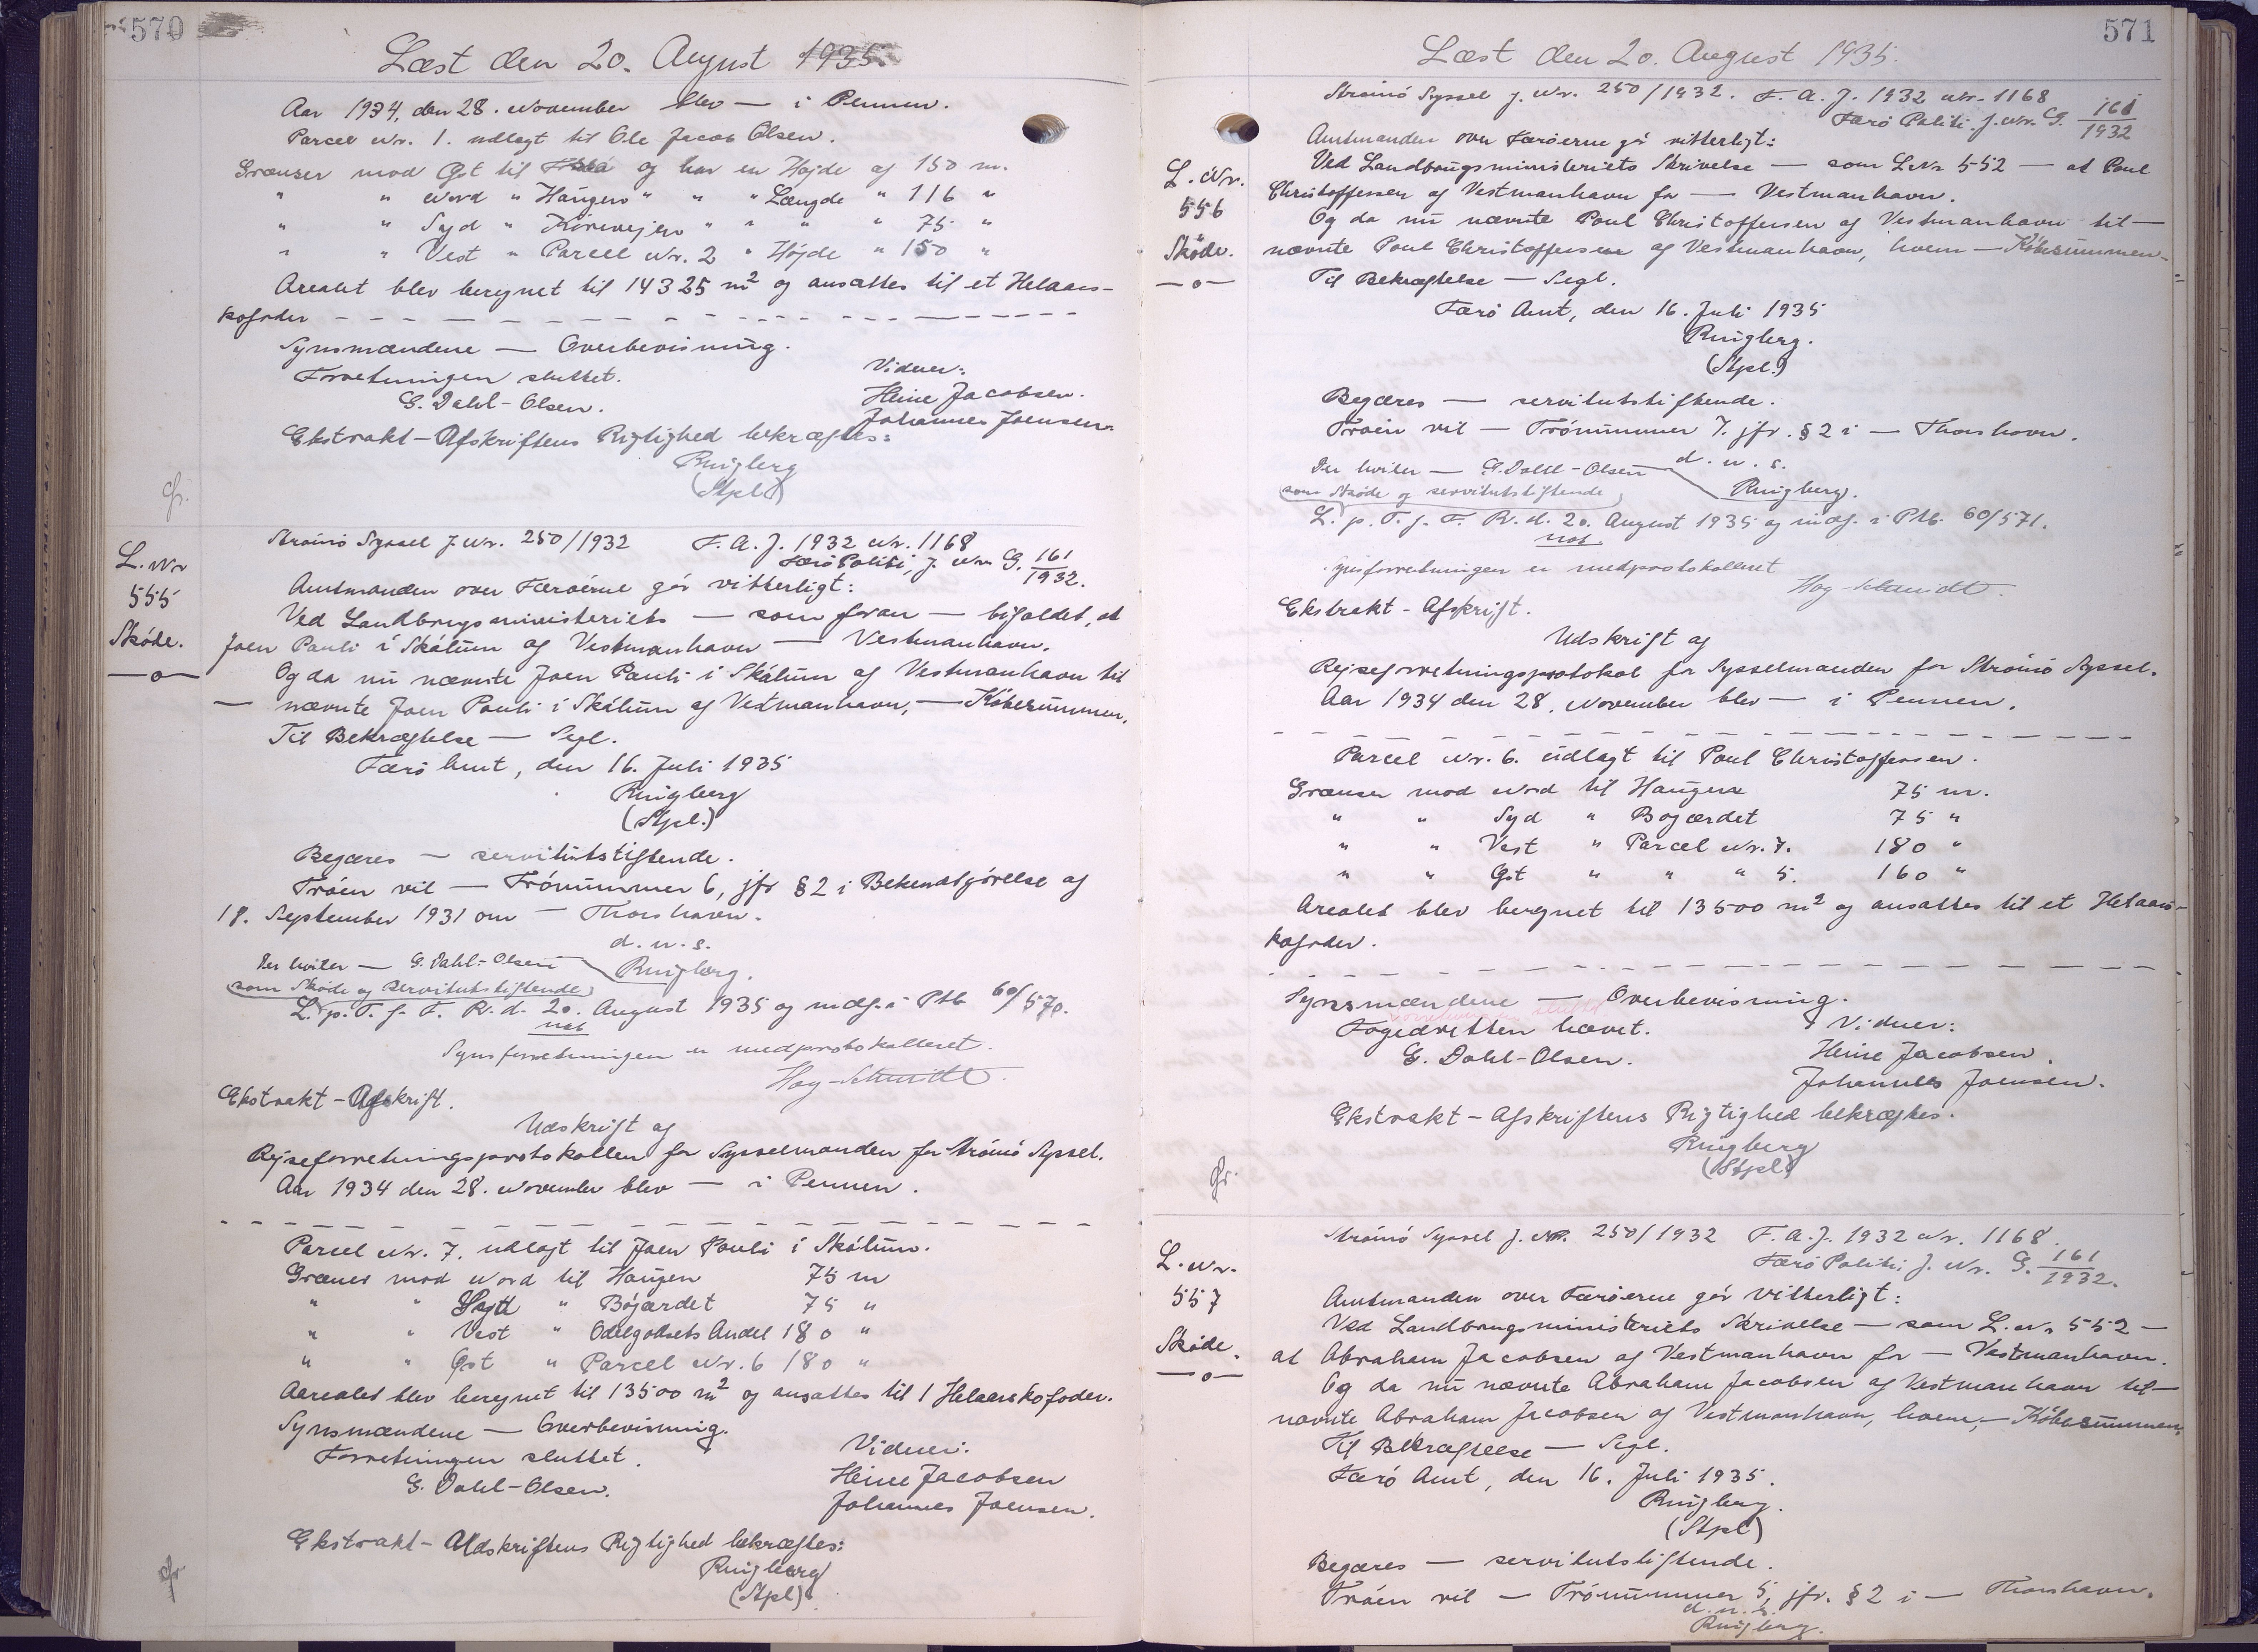 570
Læst den 20. August 1935.
Aar 1934, den 28. November blev — i Pennen.
Parcel Nr. 1. udlagt til Ole Jacob Olsen.
Grænser mod Øst til og har en Højde af 150 m.
" " Nord " Haugen " " " Længde " 116 "
" " Syd " Körevejen " " " " 75 "
" " Vest " Parcel Nr. 2 " Højde " 150 "
Arealet blev beregnet til 14325 m² og ansattes til et Helaars-
kofoder - - - - - - - - - - - - - - - -
Synsmændene — Overbevisning.
Forretningen sluttet.
Vidner:
G. Dahl-Olsen.
Heine Jacobsen.
Johannes Joensen.
Ekstrakt-Afskriftens Rigtighed bekræftes:
Ringberg
(Stpl.)
L. Nr
555
Sköde.
—o—
Strömö Syssel J. Nr. 250/1932 F. A. J. 1932 Nr. 1168
Færö Politi, J. Nr. G. 161/1932.
Amtmanden over Færöerne gör vitterligt:
Ved Landbrugsministeriets — som foran — bifaldet, at
Joen Pauli í Skálum af Vestmanhavn — Vestmanhavn.
Og da nu nævnte Joen Pauli í Skálum af Vestmanhavn til
— nævnte Joen Pauli í Skálum af Vestmanhavn, — Köbesummen,
Til Bekræftelse — Segl.
Færö Amt, den 16. Juli 1935
Ringberg
(Stpl.)
Begæres — servitutstiftende.
Tróin vil — Trónummer 6, jfr § 2 i Bekendtgörelse af
18. September 1931 om — Thorshavn.
d. u. s.
Der hviler — G. Dahl-Olsen Ringberg.
som Sköde og servitutstiftende
L. p. T. f. F. R. d. 20. August 1935 og indf. i Ptb. 60/570.
not.
Synsforretningen er medprotokolleret.
Høg-Schmidt.
Ekstrakt-Afskrift.
Udskrift af
Rejseforretningsprotokollen for Sysselmanden for Strömö Syssel.
Aar 1934 den 28. November blev — i Pennen.
- - - - - - - - - - - - - - - - - - - -
Parcel Nr. 7. udlagt til Joen Pauli í Skálum.
Grænser mod Nord til Haugen 75 m
" " Syd " Böjærdet 75 "
" " Vest " Odelgodsets Andel 180 "
" " Øst " Parcel Nr. 6 180 "
Aarealet blev beregnet til 13500 m² og ansattes til 1 Helaarskofoder.
Synsmændene — Overbevisning.
Forretningen sluttet.
Vidner:
G. Dahl-Olsen.
Heine Jacobsen
Johannes Joensen.
Ekstrakt-Udskriftens Rigtighed bekræftes:
Ringberg
(Stpl).
571
Læst den 20. August 1935.
Strömö Syssel J. Nr. 250/1932. F. A. J. 1932 Nr. 1168
Færö Politi J. Nr. G. 161/1932
L. Nr.
556
Sköde.
—o—
Amtmanden over Færöerne gör vitterligt:
Ved Landbrugsministeriets Skrivelse — som L Nr 552 — at Poul
Christoffersen af Vestmanhavn for — Vestmanhavn.
Og da nu nævnte Poul Christoffersen af Vestmanhavn til —
nævnte Poul Christoffersen af Vestmanhavn, hvem — Köbesummen-
Til Bekræftelse — Segl.
Færö Amt, den 16. Juli 1935
Ringberg.
(Stpl.)
Begæres — servitutstiftende.
Tróin vil — Trónummer 7. jfr. § 2 i — Thorshavn.
d. u. s.
Der hviler — G. Dahl-Olsen Ringberg.
som Sköde og servitutstiftende
L. p. T. f. F. R. d. 20. August 1935 og indf. i Ptb. 60/571.
not.
Synsforretningen er medprotokolleret
Høg-Schmidt.
Ekstrakt-Afskrift.
Udskrift af
Rejseforretningsprotokol for Sysselmanden for Strömö Syssel.
Aar 1934 den 28. November blev — i Pennen.
- - - - - - - - - - - - - - - - - - - -
Parcel Nr. 6. udlagt til Poul Christoffersen.
Grænser mod Nord til Haugene 75 m.
" " Syd " Bøjærdet 75 "
" " Vest " Parcel Nr. 7. 180 "
" " Øst " " " 5. 160 "
Arealet blev beregnet til 13500 m² og ansattes til et Helaars-
kofoder.
- - - - - - - - - - - - - - - - - - - -
Synsmændene — Overbevisning.
Fogedretten hævet.
Vidner:
G. Dahl-Olsen.
Heine Jacobsen.
Johannes Joensen.
Ekstrakt-Afskriftens Rigtighed bekræftes.
Ringberg
(Stpl)
L. Nr.
557
Sköde.
—o—
Strömö Syssel J. Nr. 250/1932 F. A. J. 1932 Nr. 1168.
Færö Politi, J. Nr. G. 161/1932.
Amtmanden over Færöerne gör vitterligt:
Ved Landbrugsministeriets Skrivelse — som L. Nr 552 —
at Abraham Jacobsen af Vestmanhavn for — Vestmanhavn.
Og da nu nævnte Abraham Jacobsen af Vestmanhavn til —
nævnte Abraham Jacobsen af Vestmanhavn, hvem, — Köbesummen,
Til Bekræftelse — Segl.
Færö Amt, den 16. Juli 1935.
Ringberg.
(Stpl)
Begæres — servitutstiftende.
Tróin vil — Trónummer 5, jfr. § 2 i — Thorshavn.
d. u. s.
Ringberg.